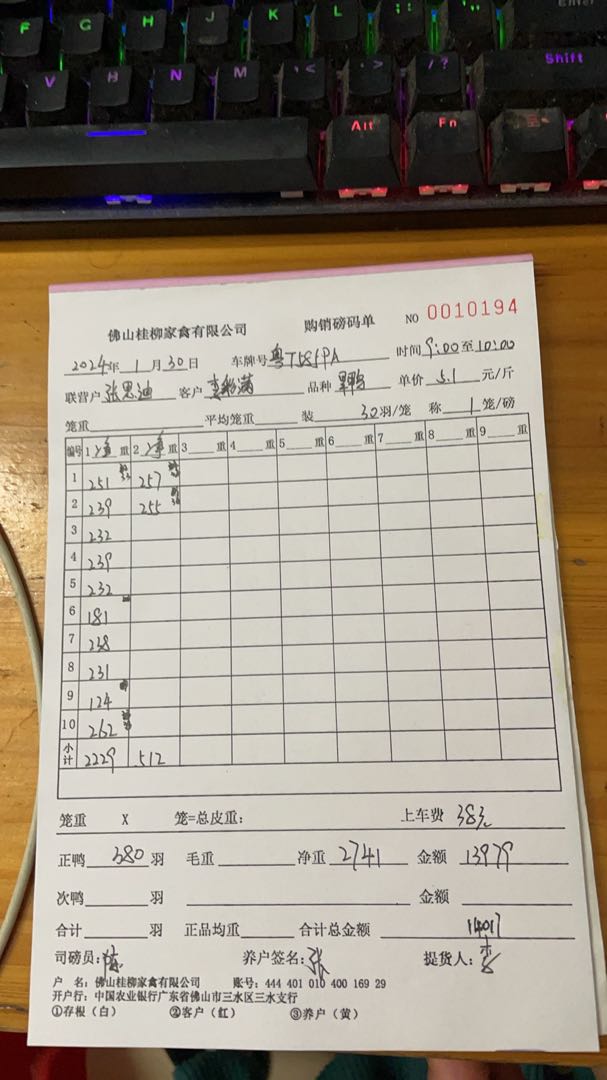 F G H J K L
V B N M , < . > / ? Shift
Alt Fn
佛山桂柳家禽有限公司 购销磅码单 NO 0010194
2024年 1月30日 车牌号 时间 9:00至10:00
联营户 张思迪 客户 品种 单价 5.1 元/斤
笼重 平均笼重 装 30羽/笼 称 1笼/磅
编号 1 净 重 2 净 重 3 重 4 重 5 重 6 重 7 重 8 重 9 重
1 251 257
2 239 255
3 232
4 239
5 232
6 181
7 238
8 231
9 124
10 262
小计 2229 512
笼重 X 笼=总皮重: 上车费 38元
正鸭 380 羽 毛重 净重 2741 金额 13979
次鸭 羽 金额
合计 羽 正品均重 合计总金额 14017
司磅员: 陈 养户签名: 张 提货人: 李
户 名: 佛山桂柳家禽有限公司 账号: 444 401 010 400 169 29
开户行: 中国农业银行广东省佛山市三水区三水支行
①存根（白） ②客户（红） ③养户（黄）